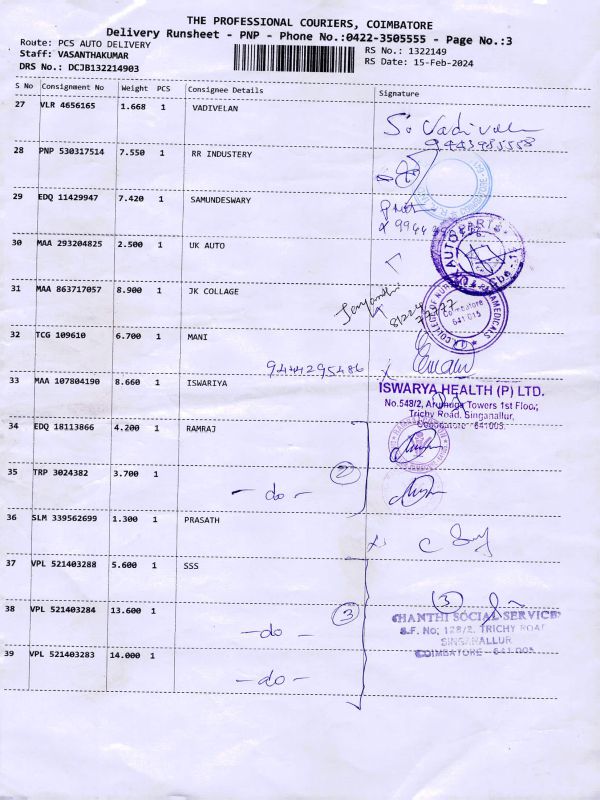 THE PROFESSIONAL COURIERS, COIMBATORE
Delivery Runsheet - PNP - Phone No.:0422-3505555 - Page No.:3
Route: PCS AUTO DELIVERY
RS No.: 1322149
Staff: VASANTHAKUMAR
RS Date: 15-Feb-2024
DRS No.: DCJB132214903
S No Consignment No Weight PCS Consignee Details Signature
27 VLR 4656165 1.668 1 VADIVELAN
S. Vadivelu
9443985558
28 PNP 530317514 7.550 1 RR INDUSTERY
29 EDQ 11429947 7.420 1 SAMUNDESWARY
30 MAA 293204825 2.500 1 UK AUTO
AUTO PARTS
31 MAA 863717057 8.900 1 JK COLLAGE
Coimbatore
641 015
PARAMEDICALS
32 TCG 109610 6.700 1 MANI
9444295486
33 MAA 107804190 8.660 1 ISWARIYA
ISWARYA HEALTH (P) LTD.
No.548/2, Arumuga Towers 1st Floor,
Trichy Road, Singanallur,
Coimbatore - 641005.
34 EDQ 18113866 4.200 1 RAMRAJ
35 TRP 3024382 3.700 1
2
- do -
36 SLM 339562699 1.300 1 PRASATH
37 VPL 521403288 5.600 1 SSS
3
38 VPL 521403284 13.600 1
3
- do -
SHANTHI SOCIAL SERVICE
S.F. No; 128/2, TRICHY ROAD
SINGANALLUR
COIMBATORE - 641 005
39 VPL 521403283 14.000 1
- do -